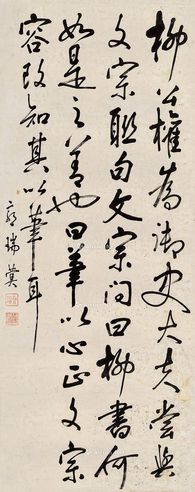 柳公權為御史大夫嘗與
文宗聯句文宗問曰柳書何
如是之善也曰筆以心正文宗
容改知其以筆耳
瑞